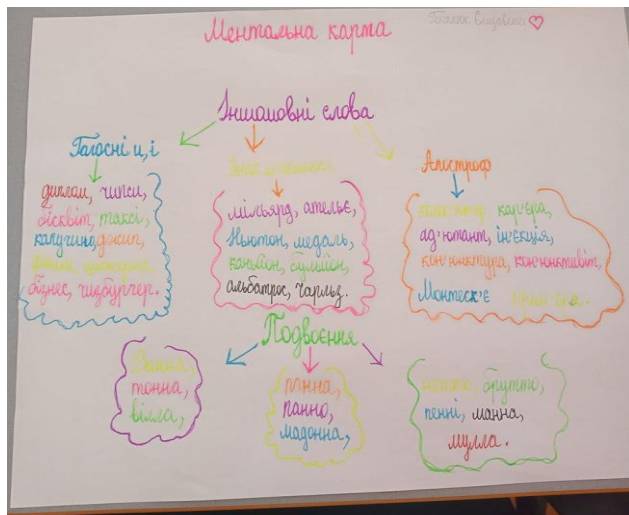 Ментальна карта
Іншомовні слова
Голосні и, і
диплом, чипси,
бісквіт, таксі,
капучино, джип,
бізнес, чизбургер.
Знак м'якшення
мільярд, ательє,
Ньютон, медаль,
каньйон, бульйон,
альбатрос, Чарльз.
Апостроф
кар'єра,
ад'ютант, ін'єкція,
кон'юнктура, кон'юнктивіт,
Монтеск'є прем'єра.
Подвоєння
Ванна,
тонна,
вілла,
панна,
панно,
мадонна,
нетто, брутто,
пенні, манна,
мулла.